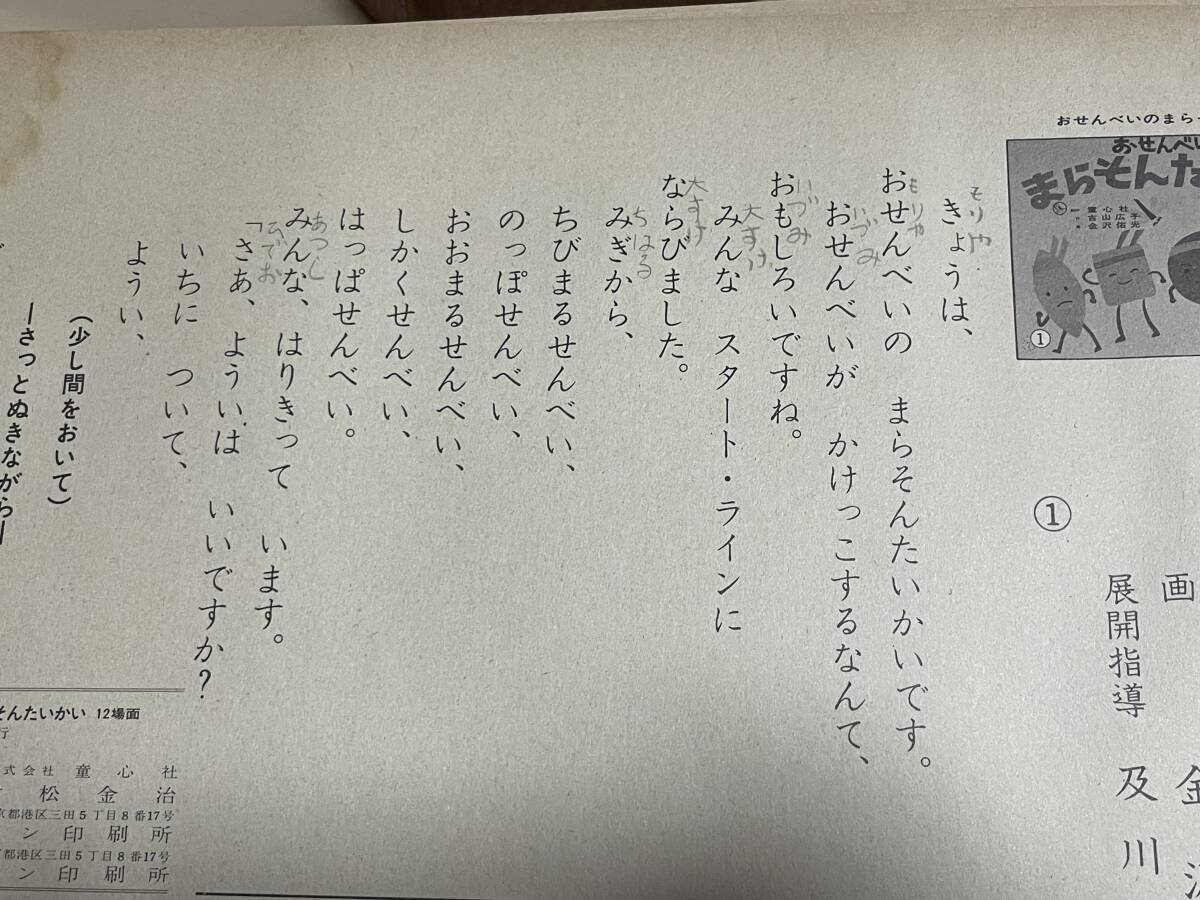 おせんべいのまらそ
おせんべい
まらそんた
童心社
古山広子
金沢佑光
①
画
金
展開指導
及川
①
きょうは、
おせんべいの まらそんたいかいです。
おせんべいが かけっこするなんて、
おもしろいですね。
みんな スタート・ラインに
ならびました。
みぎから、
ちびまるせんべい、
のっぽせんべい、
おおまるせんべい、
しかくせんべい、
はっぱせんべい。
みんな、はりきって います。
「さあ、よういは いいですか?
いちに ついて、
ようい、
(少し間をおいて)
―さっとぬきながら―
もりや
もりや
いづみ
いづみ
大すけ
大すけ
ちはる
あつし
ひでお
そんたいかい 12場面
行
式会社 童心社
村松金治
京都港区三田5丁目8番17号
ン印刷所
京都港区三田5丁目8番17号
ン印刷所